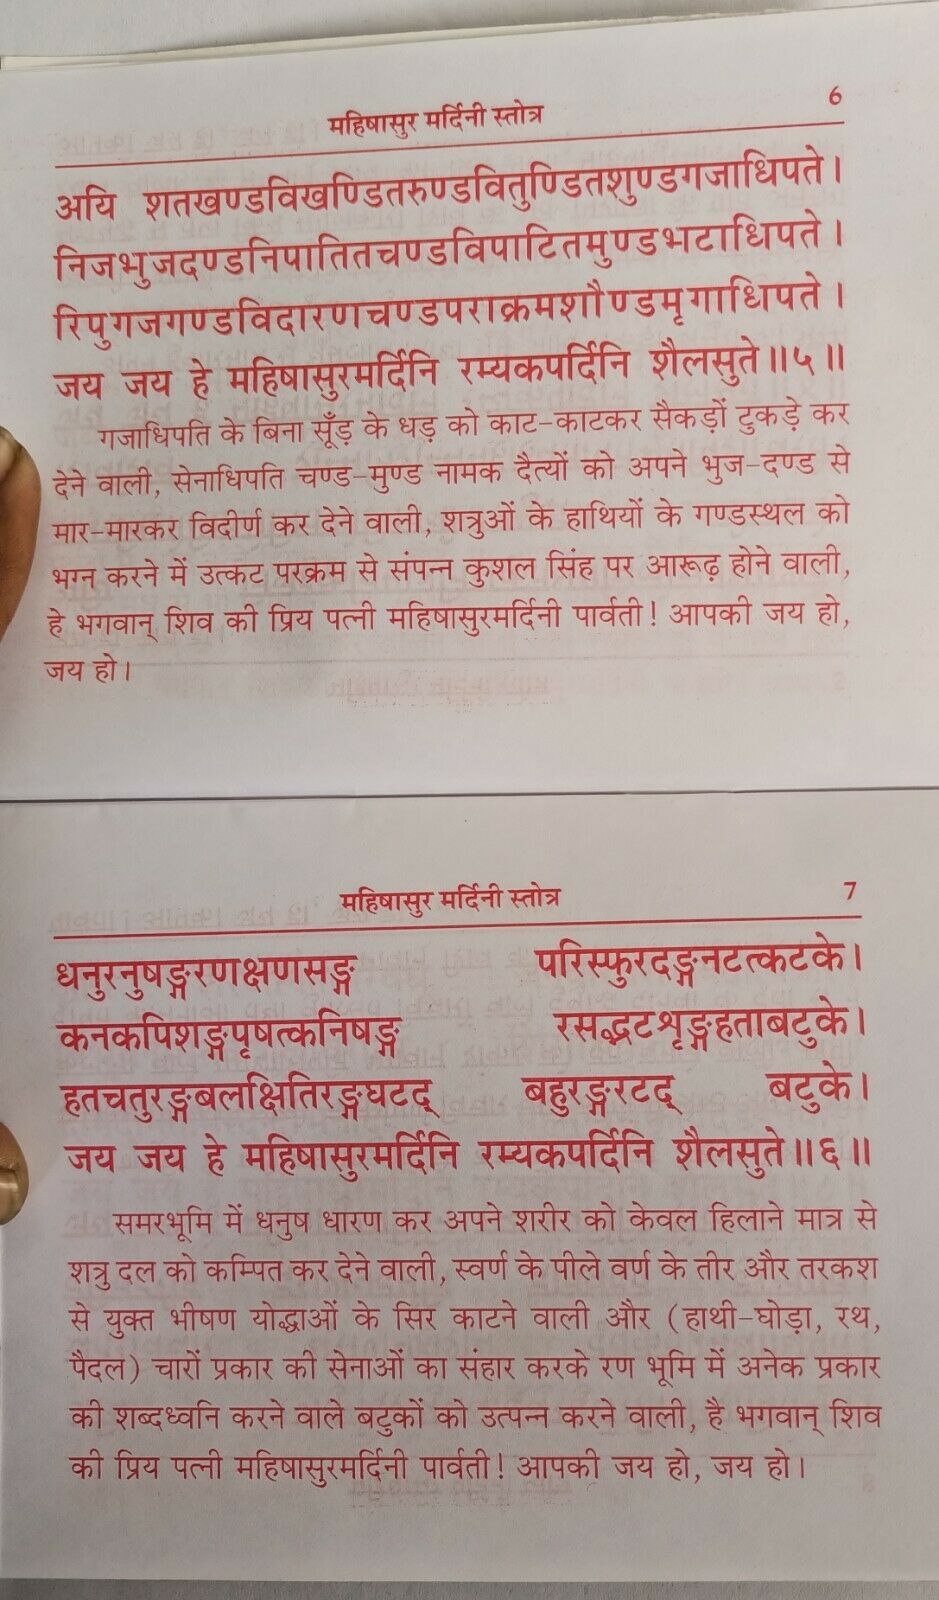 महिषासुर मर्दिनी स्तोत्र 6
अयि शतखण्डविखण्डितरुण्डवितुण्डितशुण्डगजाधिपते।
निजभुजदण्डनिपातितचण्डविपाटितमुण्डभटाधिपते।
रिपुगजगण्डविदारणचण्डपराक्रमशौण्डमृगाधिपते।
जय जय हे महिषासुरमर्दिनि रम्यकपर्दिनि शैलसुते॥५॥
गजाधिपति के बिना सूँड़ के धड़ को काट-काटकर सैकड़ों टुकड़े कर
देने वाली, सेनाधिपति चण्ड-मुण्ड नामक दैत्यों को अपने भुज-दण्ड से
मार-मारकर विदीर्ण कर देने वाली, शत्रुओं के हाथियों के गण्डस्थल को
भग्न करने में उत्कट परक्रम से संपन्न कुशल सिंह पर आरूढ़ होने वाली,
हे भगवान् शिव की प्रिय पत्नी महिषासुरमर्दिनी पार्वती! आपकी जय हो,
जय हो।
महिषासुर मर्दिनी स्तोत्र 7
धनुरनुषङ्गरणक्षणसङ्ग परिस्फुरदङ्गनटत्कटके।
कनकपिशङ्गपृषत्कनिषङ्ग रसद्भटशृङ्गहताबटुके।
हतचतुरङ्गबलक्षितिरङ्गघटद् बहुरङ्गरटद् बटुके।
जय जय हे महिषासुरमर्दिनि रम्यकपर्दिनि शैलसुते॥६॥
समरभूमि में धनुष धारण कर अपने शरीर को केवल हिलाने मात्र से
शत्रु दल को कम्पित कर देने वाली, स्वर्ण के पीले वर्ण के तीर और तरकश
से युक्त भीषण योद्धाओं के सिर काटने वाली और (हाथी-घोड़ा, रथ,
पैदल) चारों प्रकार की सेनाओं का संहार करके रण भूमि में अनेक प्रकार
की शब्दध्वनि करने वाले बटुकों को उत्पन्न करने वाली, है भगवान् शिव
की प्रिय पत्नी महिषासुरमर्दिनी पार्वती! आपकी जय हो, जय हो।